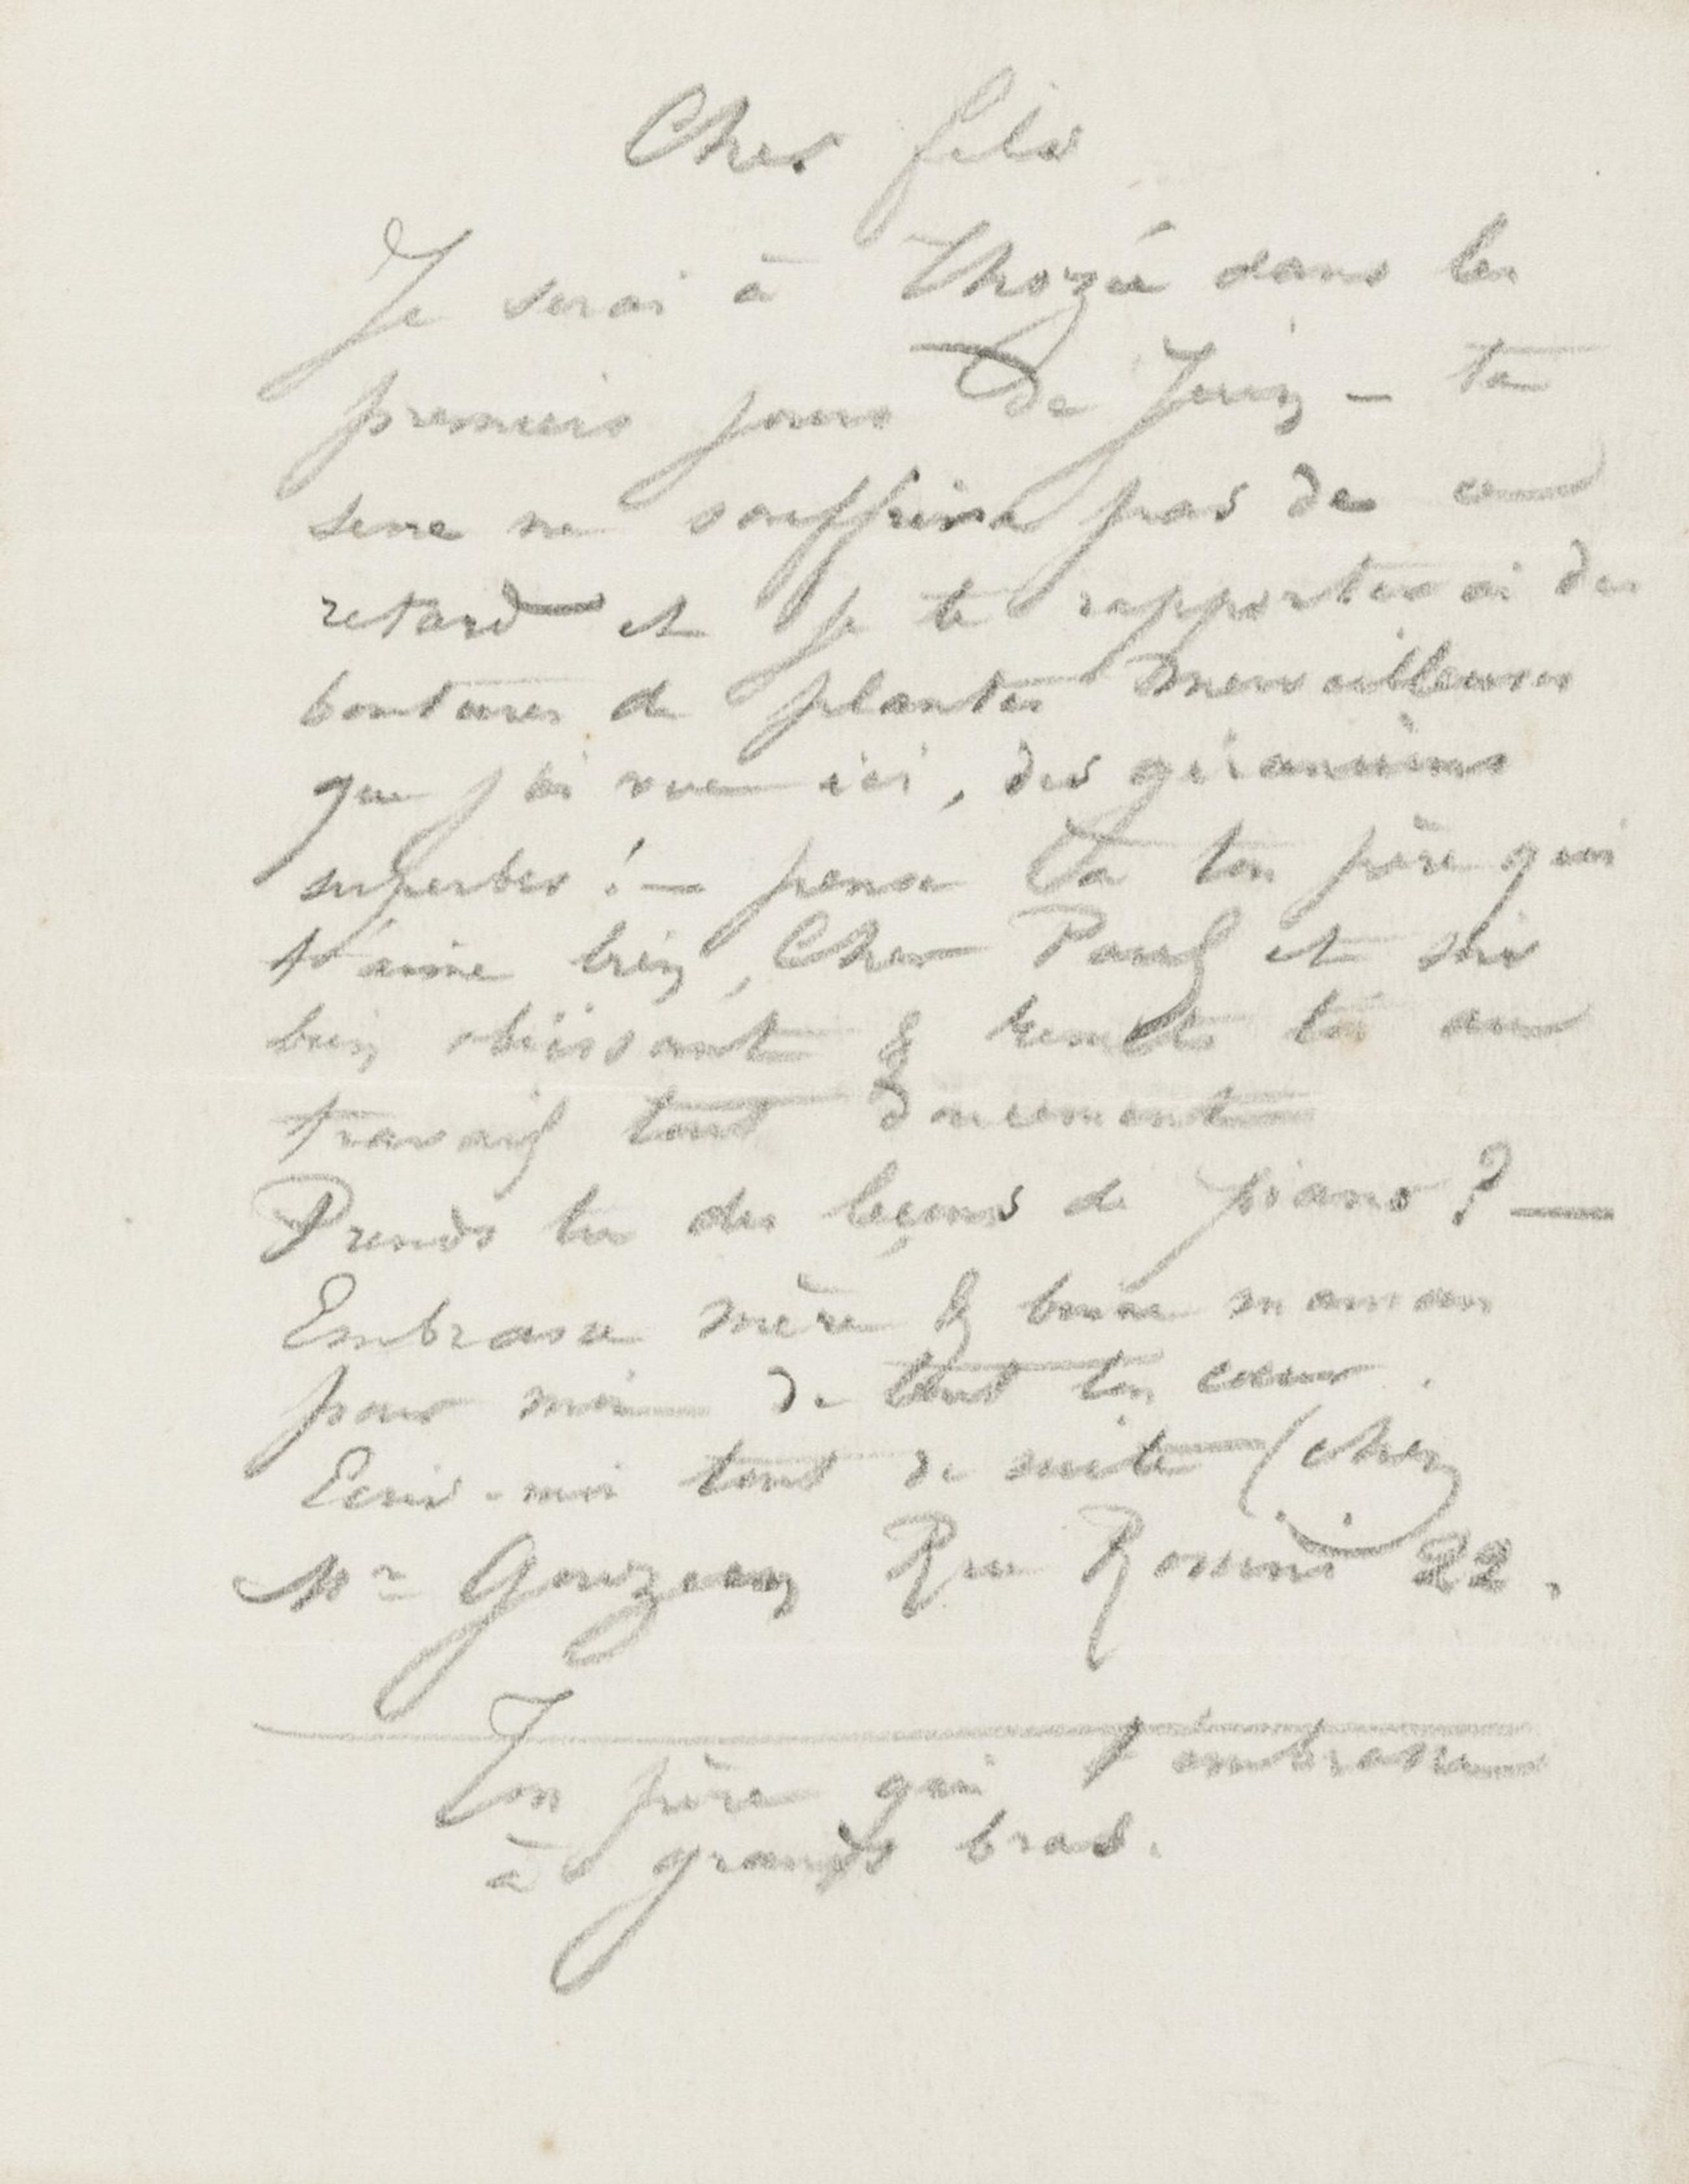 Cher fils
Je serai à Thozée dans les
premiers jours de Juin – ta
serre ne souffrira pas de ce
retard et je te rapporterai des
boutures de plantes merveilleuses
que j'ai vue ici, des géraniums
superbes ! – pense à ton père qui
t'aime bien, Cher Paul et sois
bien obéissant & remets toi au
travail tout doucement
Prends tu des leçons de piano ? —
Embrasse mère & bonne maman
pour moi de tout ton cœur.
Ecris-moi tout de suite (chez
Mr Gouzien Rue Rossini 22.
Ton père qui t'embrasse
à grands bras.